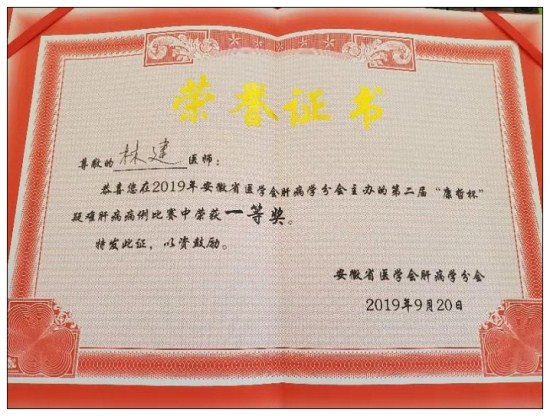 荣誉证书
尊敬的林建医师：
恭喜您在2019年安徽省医学会肝病学分会主办的第二届“康哲杯”
疑难肝病病例比赛中荣获一等奖。
特发此证，以资鼓励。
安徽省医学会肝病学分会
2019年9月20日